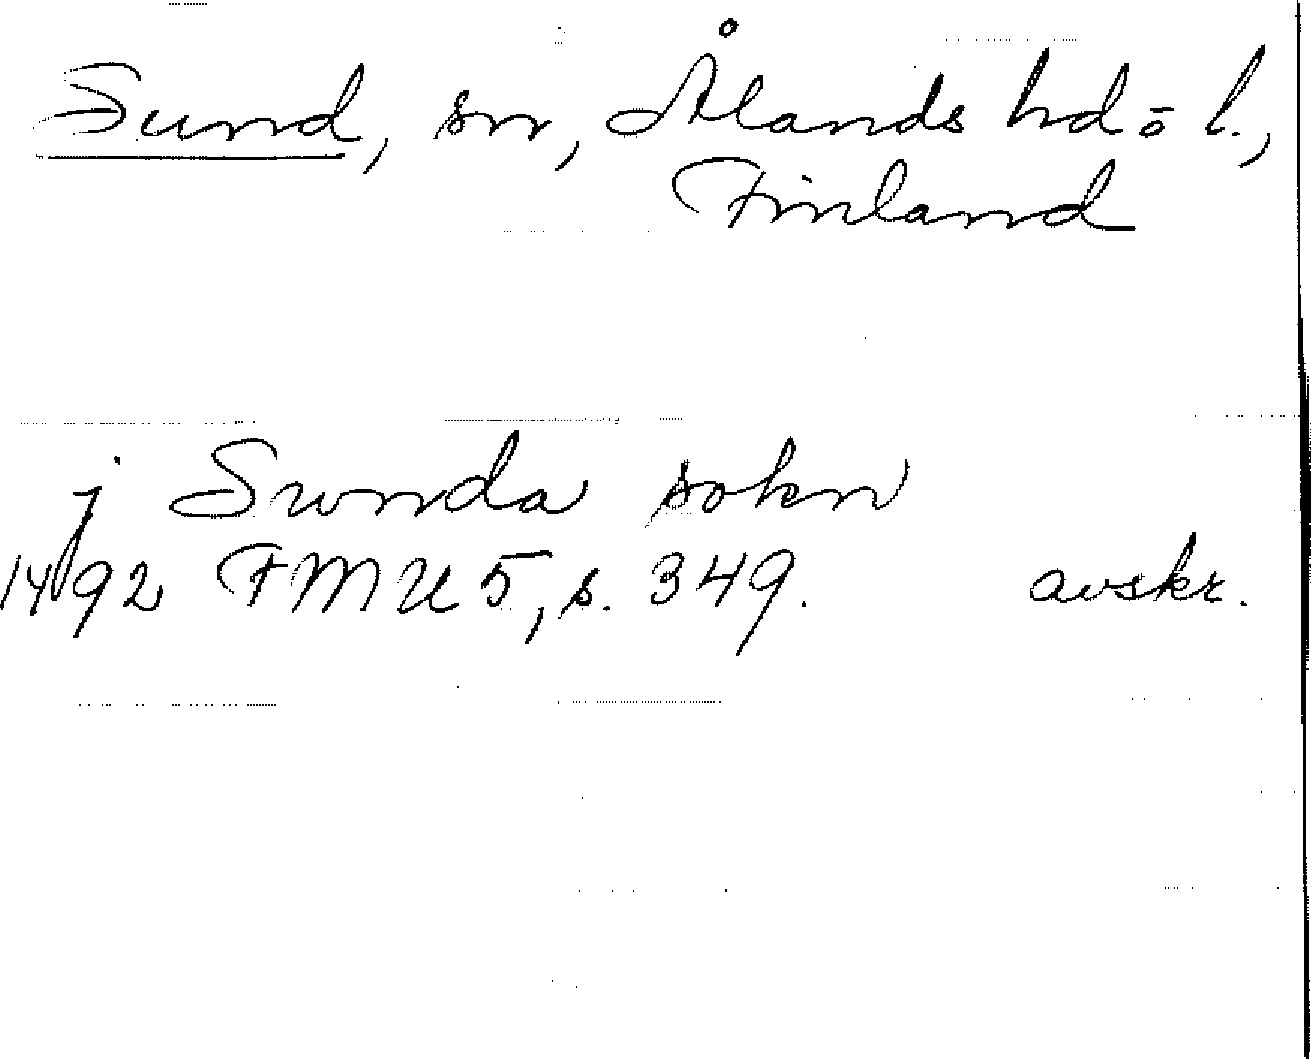 Sund, sn, Ålands hd o l.,
Finland
j Sunda sokn
1492 FMU 5, s. 349. avskr.